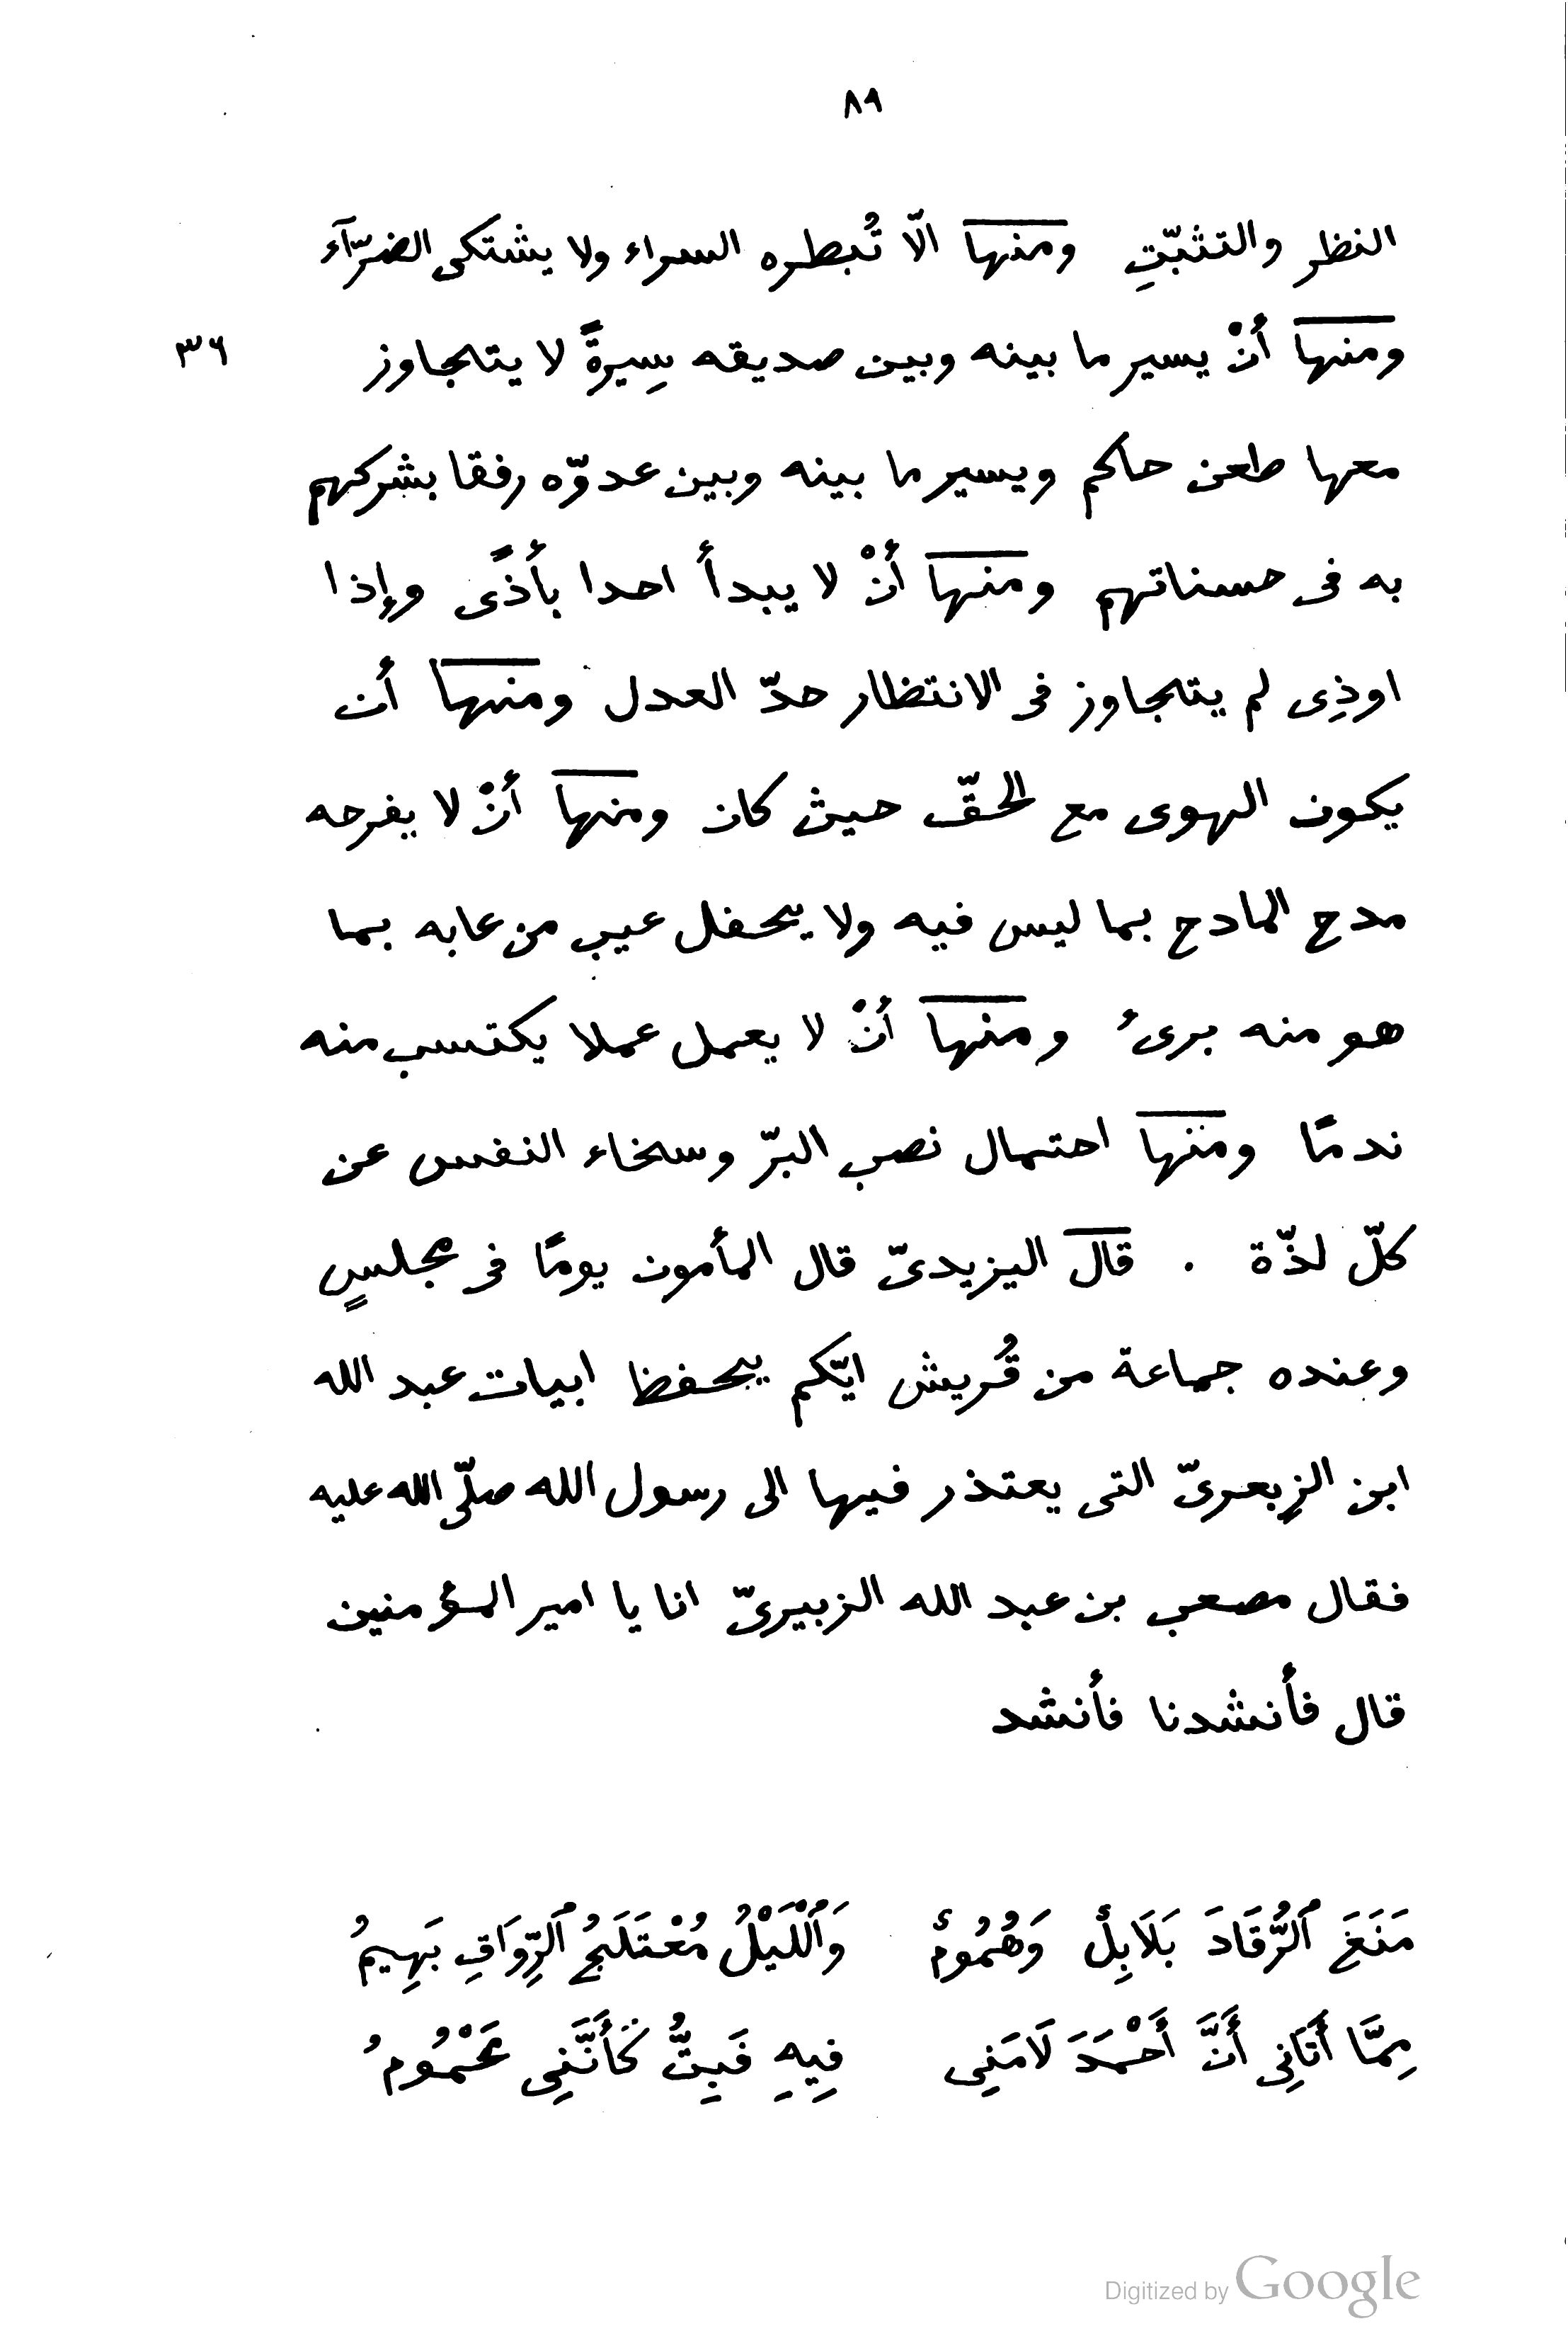 ٨٩
النظر والتثبّتِ ومنها الّا تُبطره السراء ولا يشتكى الضرّآء
ومنها أنْ يسير ما بينه وبين صديقه سِيرةً لا يتجاوز ٣٦
معها طعن حاكم ويسير ما بينه وبين عدوّه رفقا بشركهم
به فى حسناتهم ومنها أنْ لا يبدأ احدا بأذًى وإذا
اوذِى لم يتجاوز فى الانتظار حدّ العدل ومنها أن
يكون الهوى مع الحقّ حيث كان ومنها أنْ لا يفرحه
مدح المادح بما ليس فيه ولا يحفل عيب من عابه بما
هو منه برىءُ ومنها أنْ لا يعمل عملا يكتسب منه
ندمًا ومنها احتمال نصب البرّ وسخاء النفس عن
كلّ لذّة . قال اليزيدىّ قال المأمون يومًا فى مجلسٍ
وعنده جماعة من قُريش ايّكم يحفظ ابيات عبد الله
ابن الزِبعرىّ التى يعتذر فيها الى رسول الله صلّى الله عليه
فقال مصعب بن عبد الله الزبيرىّ انا يا امير المؤمنين
قال فأنشدنا فأنشد
مَنَعَ ٱلرُّقَادَ بَلَابِلٌ وَهُمُومٌ وَٱللَّيْلُ مُعْتَلَجُ ٱلرِّوَاقِ بَهِيمُ
مِمَّا أَتَانِى أَنَّ أَحْمَدَ لَامَنِى فِيهِ فَبِتُّ كَأَنَّنِى مَحْمُومُ
Digitized by Google